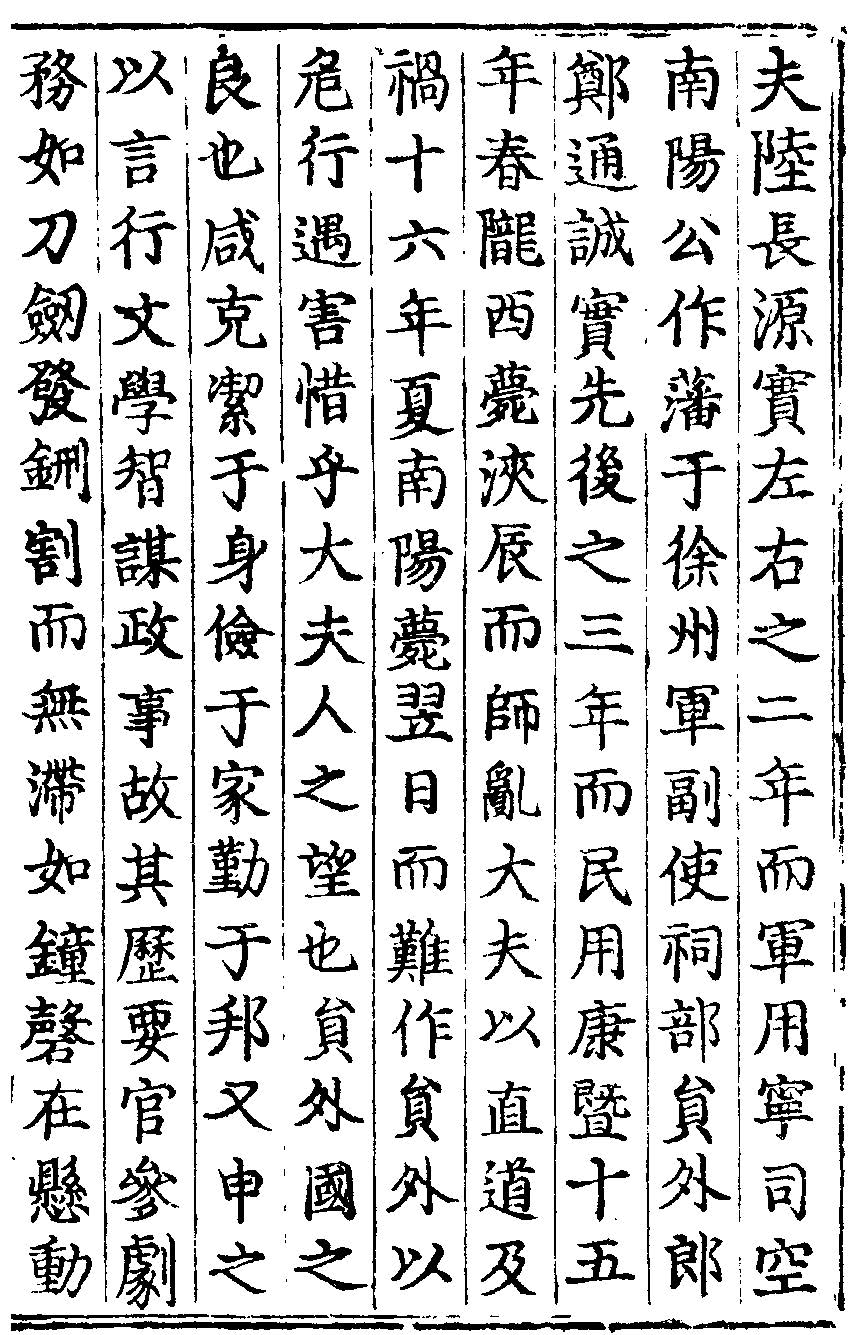 夫陸長源實左右之二年而軍用寧司空
南陽公作藩于徐州軍副使祠部貟外郎
鄭通誠實先後之三年而民用康暨十五
年春隴西薨浹辰而師亂大夫以直道及
禍十六年夏南陽薨翌日而難作貟外以
危行遇害惜乎大夫人之望也貟外國之
良也咸克潔于身儉于家勤于邦又申之
以言行文學智謀政事故其歷要官參劇
務如刀劒發鉶割而無滯如鐘磬在懸動